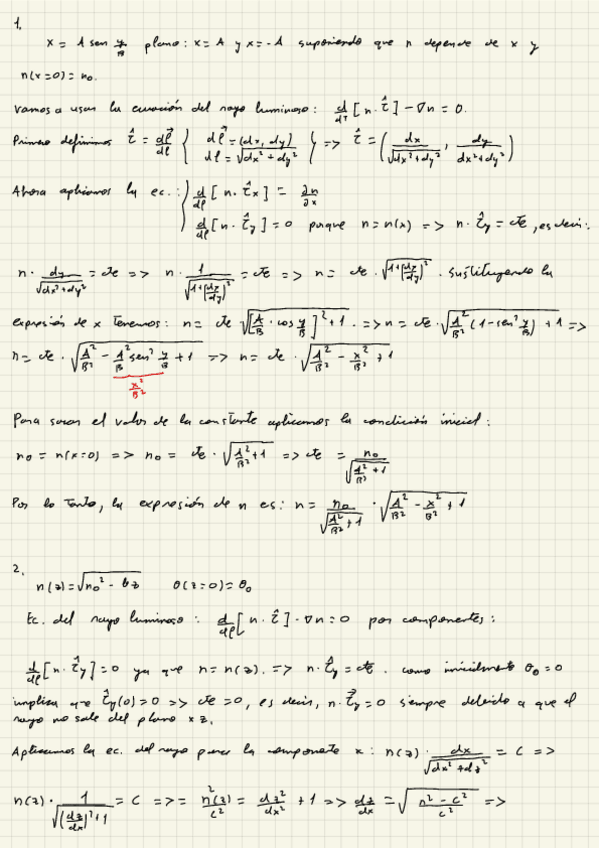 1.
x = A sen y/B plano: x = A y x = -A suponiendo que n depende de x y
n(x=0) = n₀.
Vamos a usar la ecuación del rayo luminoso: d/dτ [n·τ̂] - ∇n = 0.
Primero definimos τ̂ = dρ⃗/dl { dρ⃗ = (dx, dy) dl = √(dx²+dy²) } => τ̂ = (dx/√(dx²+dy²), dy/(dx²+dy²))
Ahora aplicamos la ec.: { d/dl [n·τ̂x] = ∂n/∂x
d/dl [n·τ̂y] = 0 porque n = n(x) => n·τ̂y = cte, es decir:
n · dy/√(dx²+dy²) = cte => n · 1/√(1+(dx/dy)²) = cte => n = cte · √(1+(dx/dy)²). Sustituyendo la
expresión de x tenemos: n = cte √([A/B · cos y/B]² + 1). => n = cte · √(A²/B² (1 - sen² y/B) + 1) =>
n = cte · √(A²/B² - A²/B² sen² y/B + 1) => n = cte · √(A²/B² - x²/B² + 1)
x²/B²
Para sacar el valor de la constante aplicamos la condición inicial:
n₀ = n(x=0) => n₀ = cte · √(A²/B² + 1) => cte = n₀/√(A²/B² + 1)
Por lo tanto, la expresión de n es: n = n₀/√(A²/B² + 1) · √(A²/B² - x²/B² + 1)
2.
n(z) = √(n₀² - bz) θ(z=0) = θ₀
Ec. del rayo luminoso: d/dl [n·τ̂] - ∇n = 0 por componentes:
d/dl [n·τ̂y] = 0 ya que n = n(z). => n·τ̂y = cte. como inicialmente θ₀ = 0
implica que τ̂y(0) = 0 => cte = 0, es decir, n·τ̂y = 0 siempre debido a que el
rayo no sale del plano xz.
Aplicamos la ec. del rayo para la componente x: n(z) · dx/√(dx²+dz²) = C =>
n(z) · 1/√((dz/dx)²+1) = C => = n²(z)/c² = dz²/dx² + 1 => dz/dx = √((n² - c²)/c²) =>